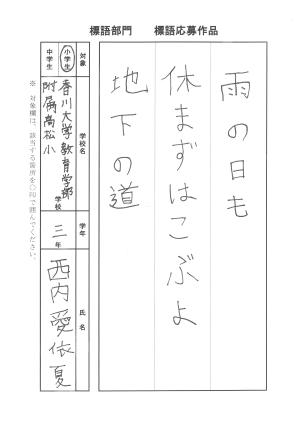 標語部門　　標語応募作品
雨の日も
休まずはこぶよ
地下の道
対象　学校名　学年　氏名
小学生　中学生
香川大学教育学部
附属高松小　学校
三年
西内愛依夏
※　対象欄は、該当する箇所を〇印で囲んでください。